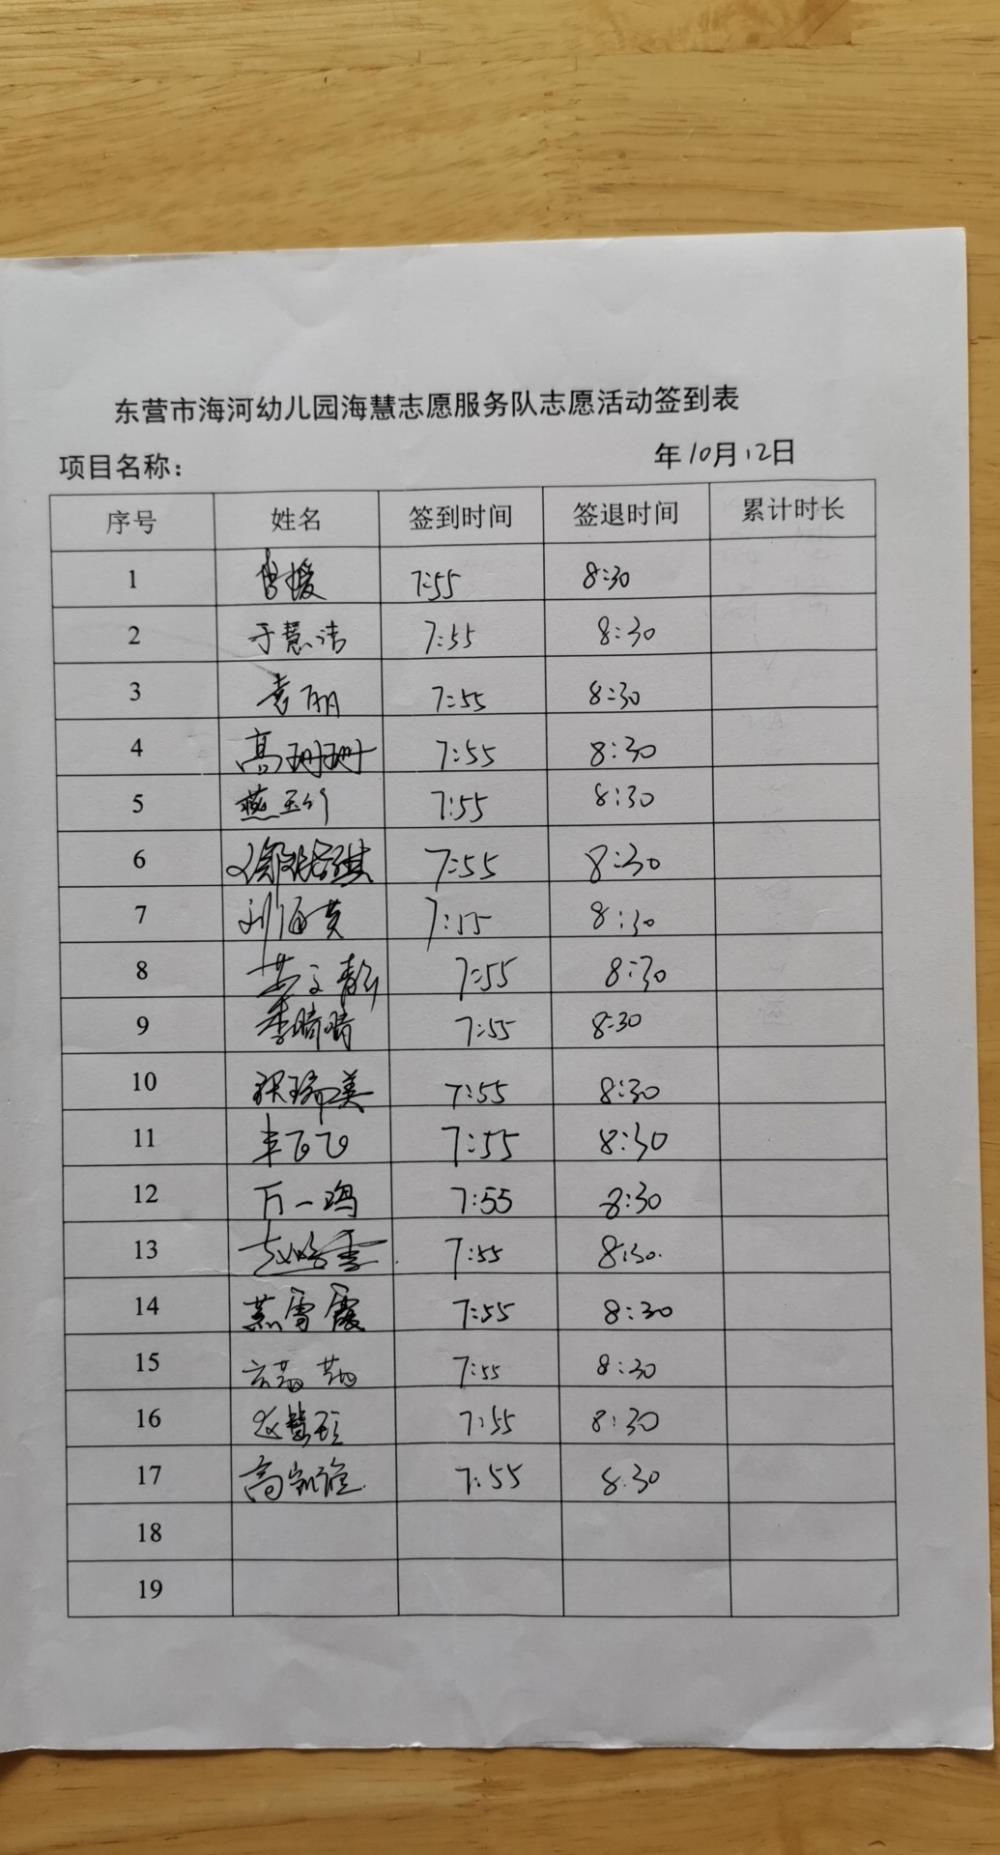 东营市海河幼儿园海慧志愿服务队志愿活动签到表
项目名称： 年10月12日
序号 姓名 签到时间 签退时间 累计时长
1 曾媛 7:55 8:30
2 于慧洁 7:55 8:30
3 袁丽 7:55 8:30
4 高珊珊 7:55 8:30
5 燕玉 7:55 8:30
6 7:55 8:30
7 刘海英 7:55 8:30
8 文静 7:55 8:30
9 季晴晴 7:55 8:30
10 瑞美 7:55 8:30
11 飞飞 7:55 8:30
12 万一鸿 7:55 8:30
13 赵 7:55 8:30.
14 燕雪霞 7:55 8:30
15 7:55 8:30
16 慧 7:55 8:30
17 高 7:55 8.30
18
19